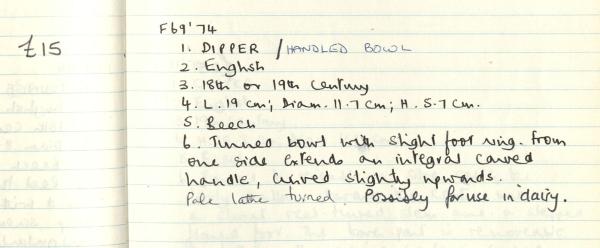 F69'74
£15
1. DIPPER / HANDLED BOWL
2. English
3. 18th or 19th century
4. L. 19 cm; Diam. 11.7 cm; H. 5.7 cm.
5. Beech
6. Turned bowl with slight foot ring. From
one side extends an integral carved
handle, curved slightly upwards.
Pole lathe turned Possibly for use in dairy.